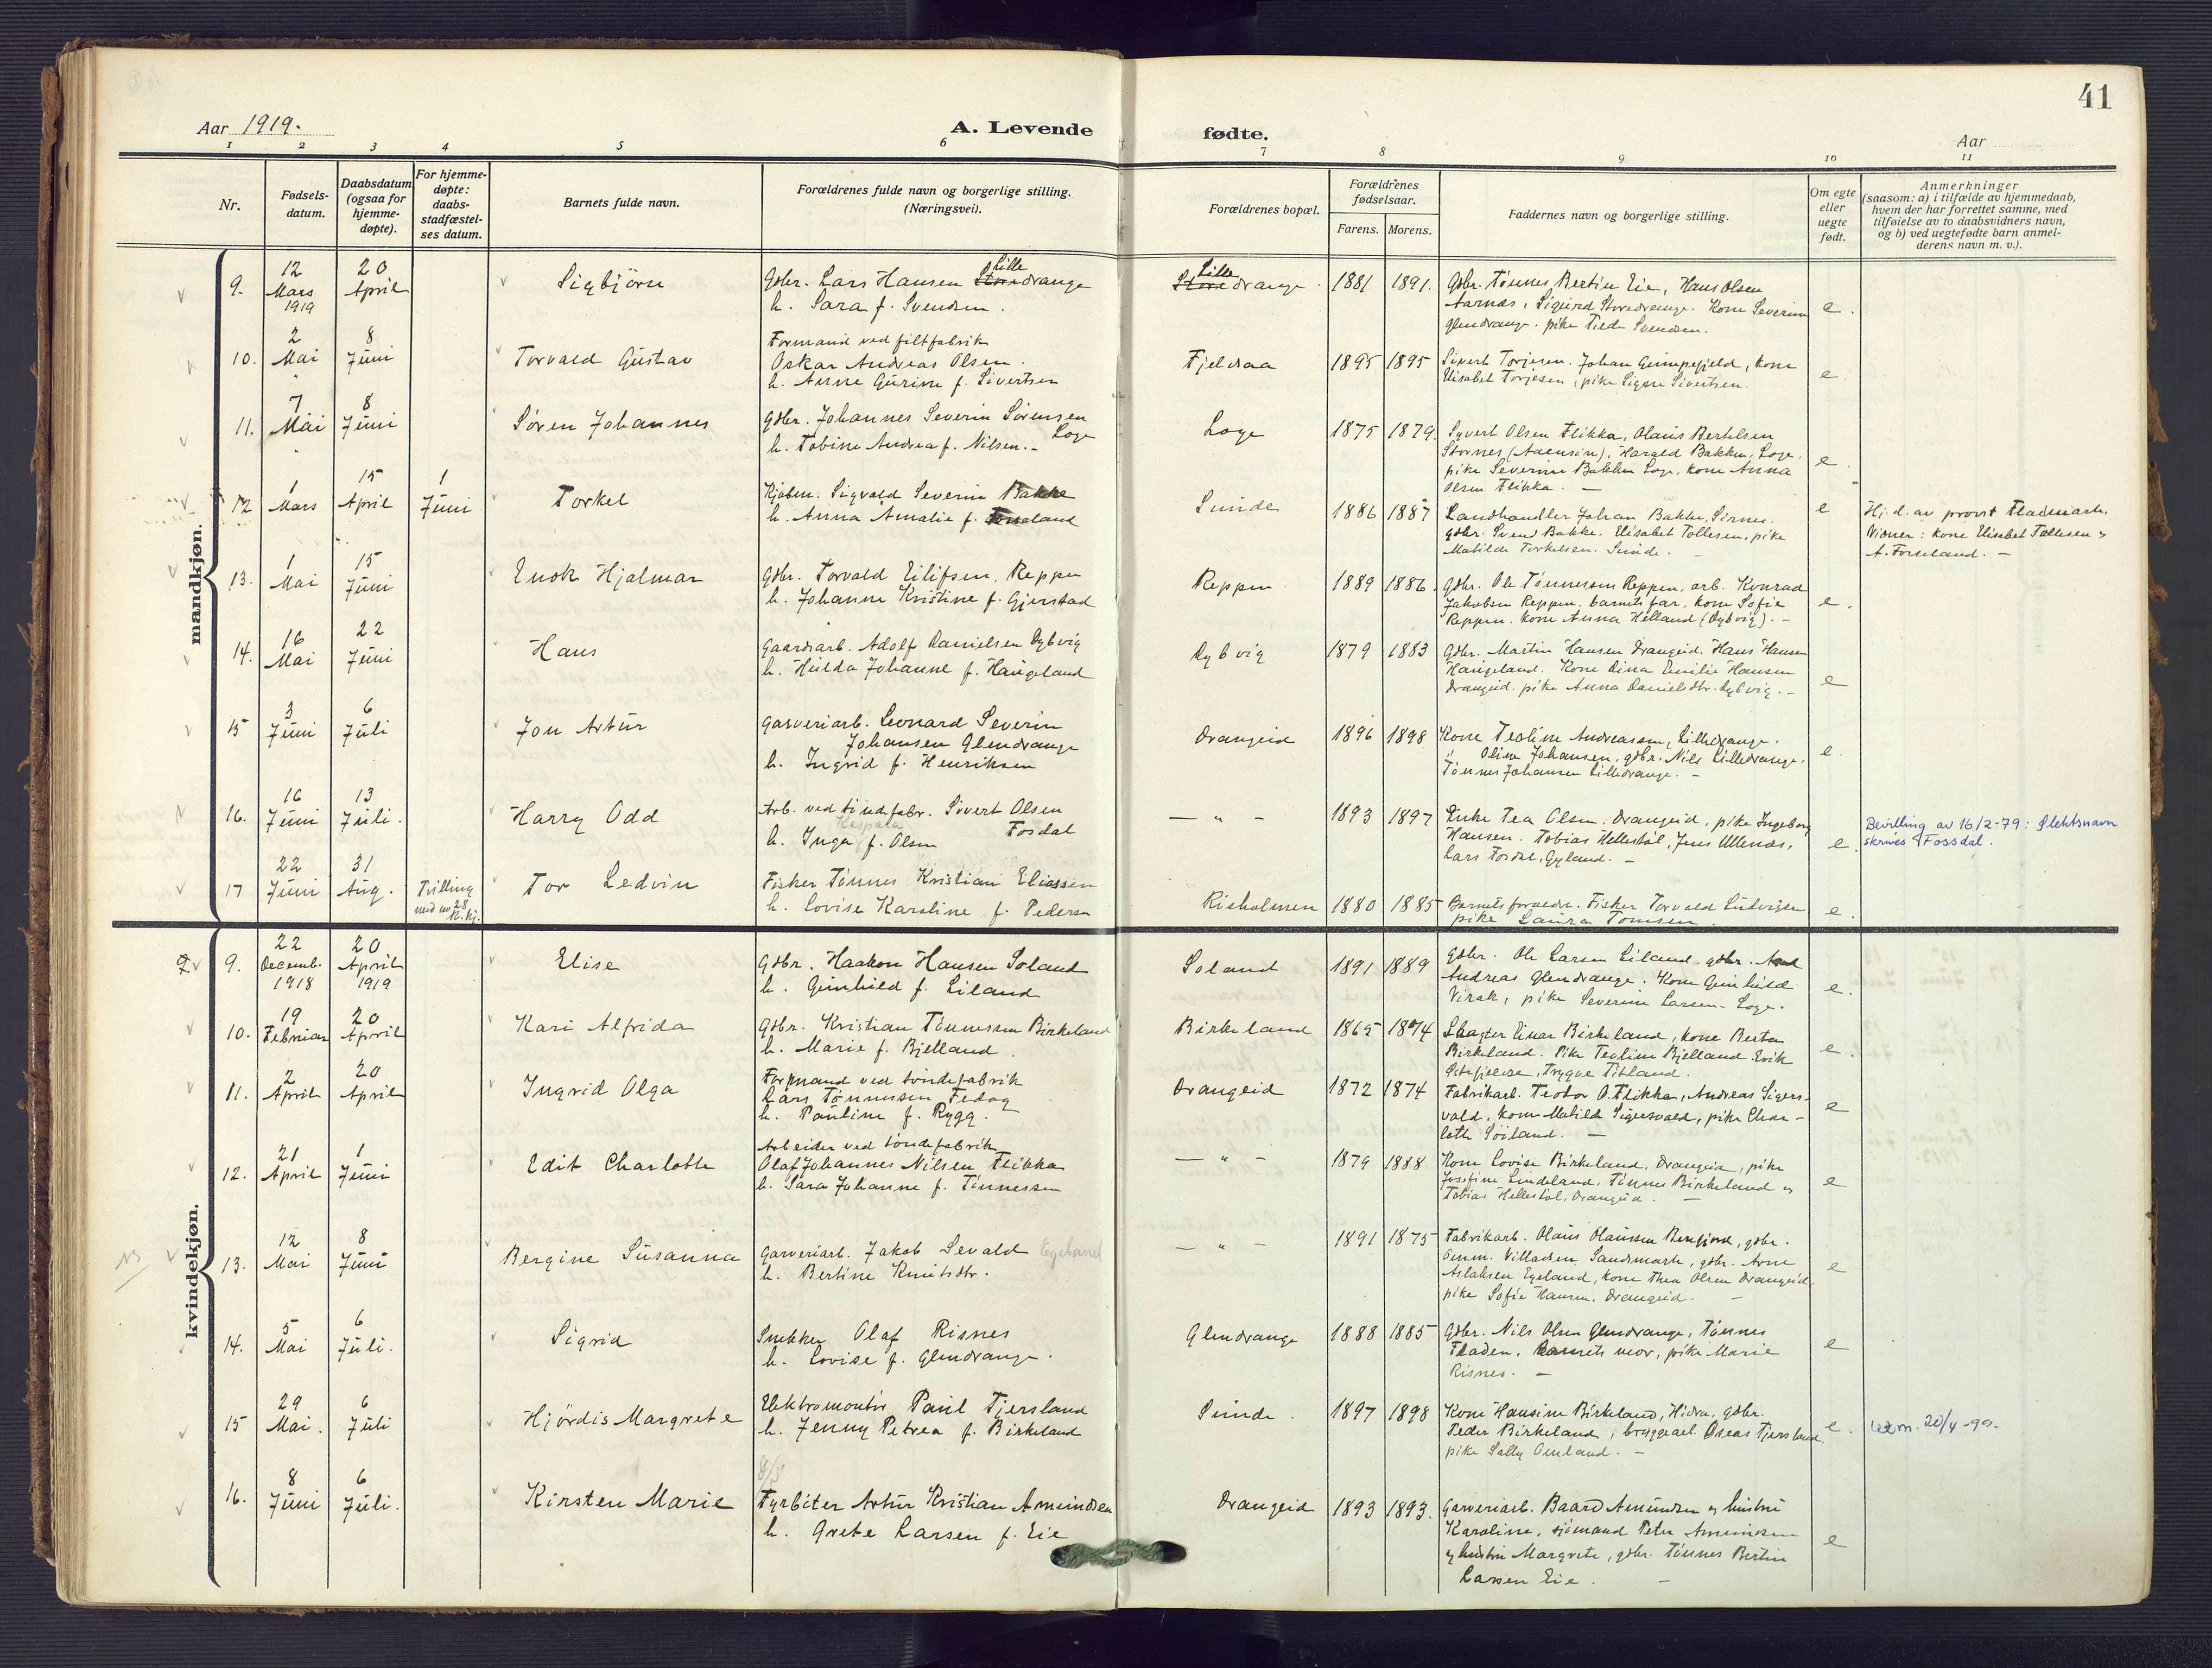 41
Aar 1919.
A. Levende fødte.
Aar
1 2 3 4 5 6 7 8 9 10 11
Nr.
Fødsels-
datum.
Daabsdatum
(ogsaa for
hjemme-
døpte).
For hjemme-
døpte:
daabs-
stadfæstel-
ses datum.
Barnets fulde navn.
Forældrenes fulde navn og borgerlige stilling.
(Næringsvei).
Forældrenes bopæl.
Forældrenes
fødselsaar.
Farens. Morens.
Faddernes navn og borgerlige stilling.
Om egte
eller
uegte
født.
Anmerkninger
(saasom: a) i tilfælde av hjemmedaab,
hvem der har forrettet samme, med
tilføielse av to daabsvidners navn,
og b) ved uegtefødte barn anmel-
derens navn m. v.).
mandkjøn.
9. 12 Mars 1919 20 April Sigbjörn
Gdbr. Lars Hansen Lille Store drange
h. Sara f. Svendsen.
Lille Store drange 1881 1891.
Gdbr. Tönnes Bertin Eie, Hans Olsen
Aarnæs, Sigurd Storedrange. Kone Severine
Glendrange. pike Tilda Svendsen.
e.
10. 2 Mai 8 Juni Torvald Gustav
Formand ved filtfabrik
Oskar Andreas Olsen.
h. Anne Gurine f. Sivertsen
Fjeldsaa 1895 1895
Sivert Torjesen. Johan Gumpefjeld, kone
Elisabet Torjesen, pike Signe Sivertsen.
e
11. 7 Mai 8 Juni Sören Johannes
Gdbr. Johannes Severin Sörensen
Loge
h. Tobine Andrea f. Nilsen. -
Loge 1875 1879.
Syvert Olsen Flikka, Olaus Bertelsen
Stornes, Harald Bakken, Loge.
pike Severine Bakken Loge, kone Anna
Olsen Flikka. -
e
12 1 Mars 15 April 1 Juni Torkel
Kjöbm. Sigvald Severin Bakke
h. Anna Amalie f.
Sunde 1886 1887
Landhandler Johan Bakke, Sirnes.
gdbr. Svend Bakke. Elisabet Tollesen, pike
Matilde Torkelsen. Sunde. -
e
Hj. d. av provst Fladmark.
Vidner: kone Elisabet Tollesen &
A. Forseland. -
13. 1 Mai 15 Juni Enok Hjalmar
Gdbr. Torvald Eilifsen, Reppen
h. Johanne Kristine f. Gjerstad
Reppen 1889 1886.
Gdbr. Ole Tönnessen Reppen, arb. Konrad
Jakobsen Reppen, barnets far, kone Sofie
Reppen. kone Anna Helland (Dybvig). -
e.
14. 16 Mai 22 Juni Hans
Gaardsarb. Adolf Danielsen Dybvig
h. Hulda Johanne f. Haugeland
Dybvig 1879 1883
Gdbr. Martin Hansen Drangeid. Hans Hansen
Haugeland. Kone Dina Emilie Hansen
Drangeid. pike Anna Danielsdtr. Dybvig. -
e
15 3 Juni 6 Juli Jon Artur
Garveriarb. Leonard Severin
Johansen Glendrange
h. Ingrid f. Henriksen
Drangeid 1896 1898
Kone Teoline Andreassen, Lilledrange.
" Oline Johansen, gdbr. Nils Lilledrange.
Tönnes Johansen Lilledrange. -
e.
16. 16 Juni 13 Juli. Harry Odd
Arb. ved töndefabr. Sivert Olsen
Fosdal
h. Inga f. Olsen
- " - 1893 1897
Enke Tea Olsen. Drangeid, pike Ingeborg
Hansen. Tobias Hellestöl, Jens Ullenæs,
Lars Fosdal, Gyland. -
e.
Bevilling av 16/2-79: Slektsnavn
skrives Fossdal.
17 22 Juni 31 Aug. Tvilling med nr 28 K.kj. Tor Ledvin
Fisker Tönnes Kristian Eliassen
h. Lovise Karoline f. Pedersen
Risholmen 1880 1885
Barnets foreldre. Fisker Torvald Ludvigsen
pike Laura Tomsen.
e.
kvindekjøn.
9. 22 Decemb. 1918 20 April 1919 Elise
Gdbr. Haakon Hansen Soland
h. Gunhild f. Liland
Soland 1891 1889
Gdbr. Ole Larsen Liland gdbr.
Andreas Glendrange. Kone Gunhild
Virak, pike Severine Larsen. Loge.
e.
10. 19 Februar 20 April Kari Alfrida
Gdbr. Kristian Tönnessen Birkeland
h. Marie f. Bjelland.
Birkeland 1865 1874
Slagter Einar Birkeland, kone Berta
Birkeland. Pike Teoline Bjelland. Erik
Trygve Titland.
e.
11. 2 April 20 April Ingrid Olga
Formand ved töndefabrik
Lars Tönnessen Fedog
h. Pauline f. Rygg.
Drangeid 1872 1874
Fabrikarb. Teodor O. Flikka, Andreas Sigers-
vold, kone Matilde Sigersvold, pike Char-
lotte Söiland. -
e
12. 21 April 1 Juni Edit Charlotte
Arbeider ved töndefabrik
Olaf Johannes Nilsen Flikka
h. Sara Johanne f. Tönnessen
- " - 1879 1888
Kone Lovise Birkeland, Drangeid, pike
Josefine Lindeland, Tönnes Birkeland &
Tobias Hellestöl, Drangeid. -
e
13. 12 Mai 8 Juni Bergine Susanna
Garveriarb. Jakob Sevald Egeland
h. Bertine Knutsdtr.
- " - 1891 1875
Fabrikarb. Olaus Olaussen, gdbr.
Villadsen Sandsmark, gdbr. Arne
Aslaksen Egeland, kone Thea Olsen Drangeid,
pike Sofie Hansen, Drangeid. -
e
14. 5 Mai 6 Juli. Sigrid
Snekker Olaf Risnes
h. Lovise f. Glendrange.
Glendrange 1888 1885
Gdbr. Nils Olsen Glendrange, Tönnes
Fladen, barnets mor, pike Marie
Risnes. -
e
15 29 Mai. 6 Juli Hjördis Margrete
Elektromontör Paul Tjersland
h. Jenny Petrea f. Birkeland
Sunde. 1897 1898
Kone Hansine Birkeland, Hidra, gdbr.
Peder Birkeland, bryggearb. Oseas Tjersland,
pike Sally Omland. -
e.
20/4-99.
16. 8 Juni 6 Juli. Kirsten Marie
Fyrböter Artur Kristian Amundsen
h. Grete Larsen f. Eie
Drangeid 1893 1893.
Garveriarb. Baard Amundsen & hustru
Karoline, sjömand Peter Amundsen
& hustru Margrete, gdbr. Tönnes Bertin
Larsen Eie. -
e